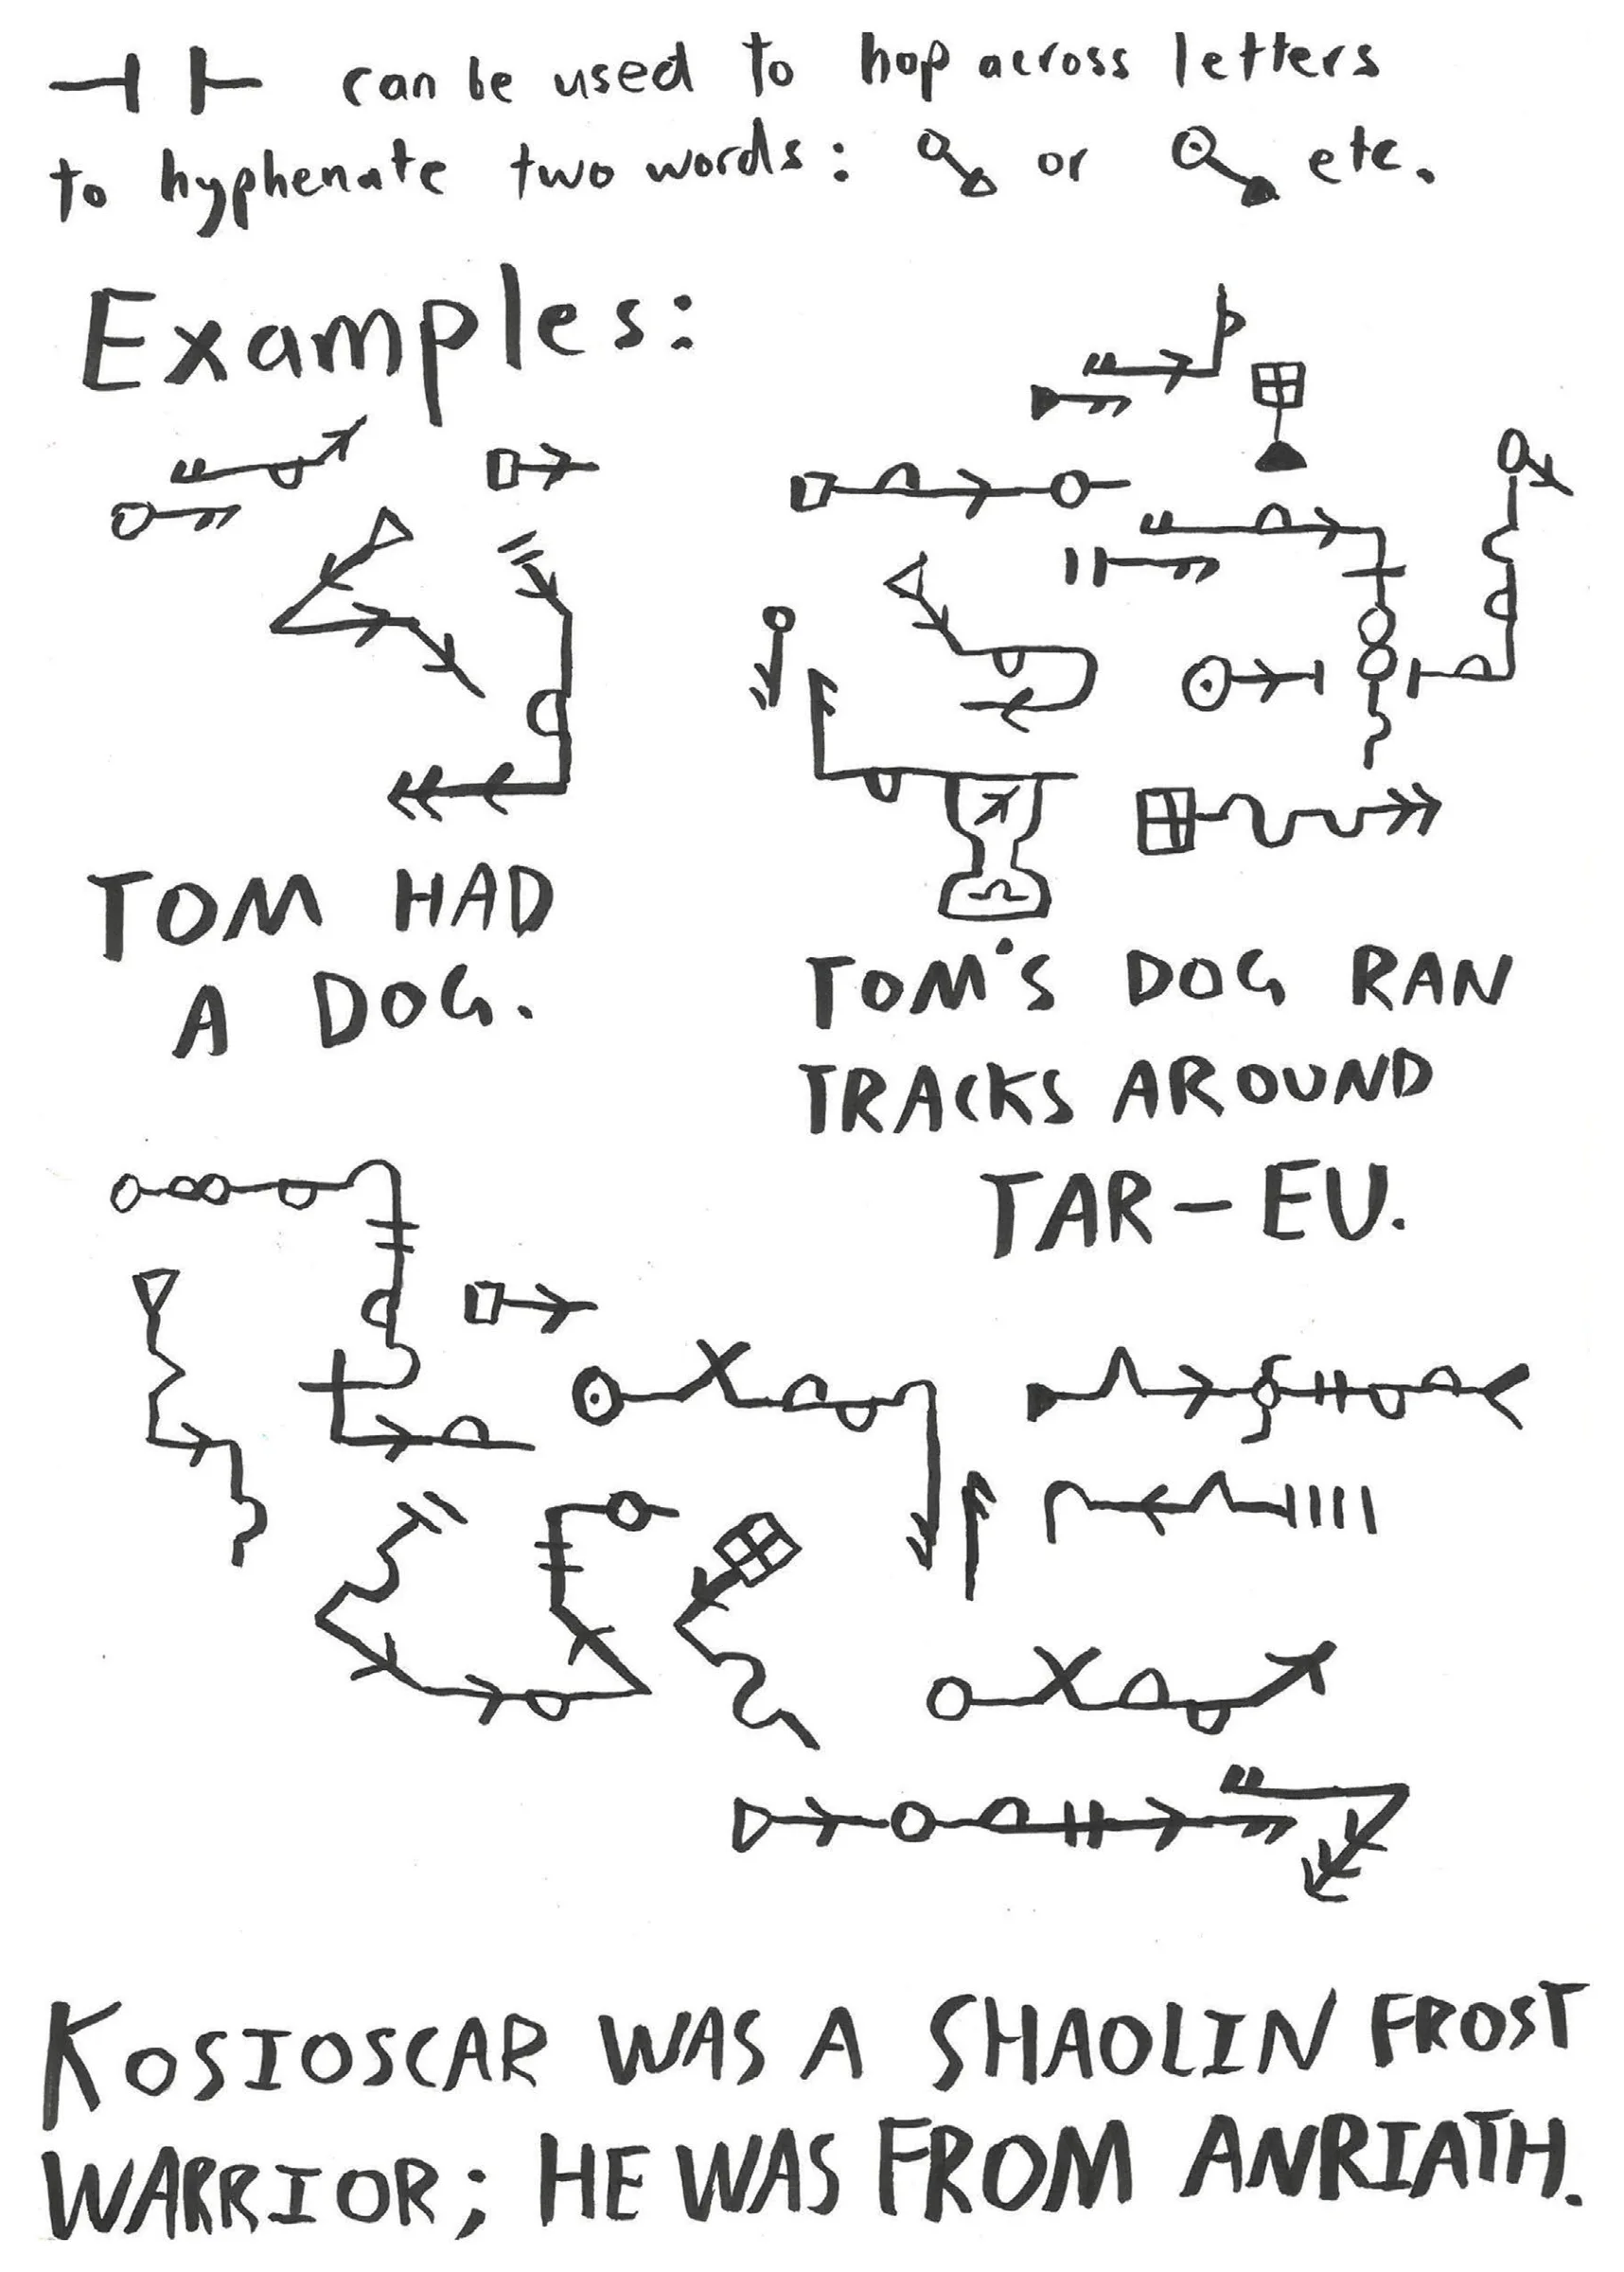 can be used to hop across letters
to hyphenate two words: or etc.
Examples:
TOM HAD
A DOG.
TOM'S DOG RAN
TRACKS AROUND
TAR-EU.
KOSIOSCAR WAS A SHAOLIN FROST
WARRIOR; HE WAS FROM ANRIATH.